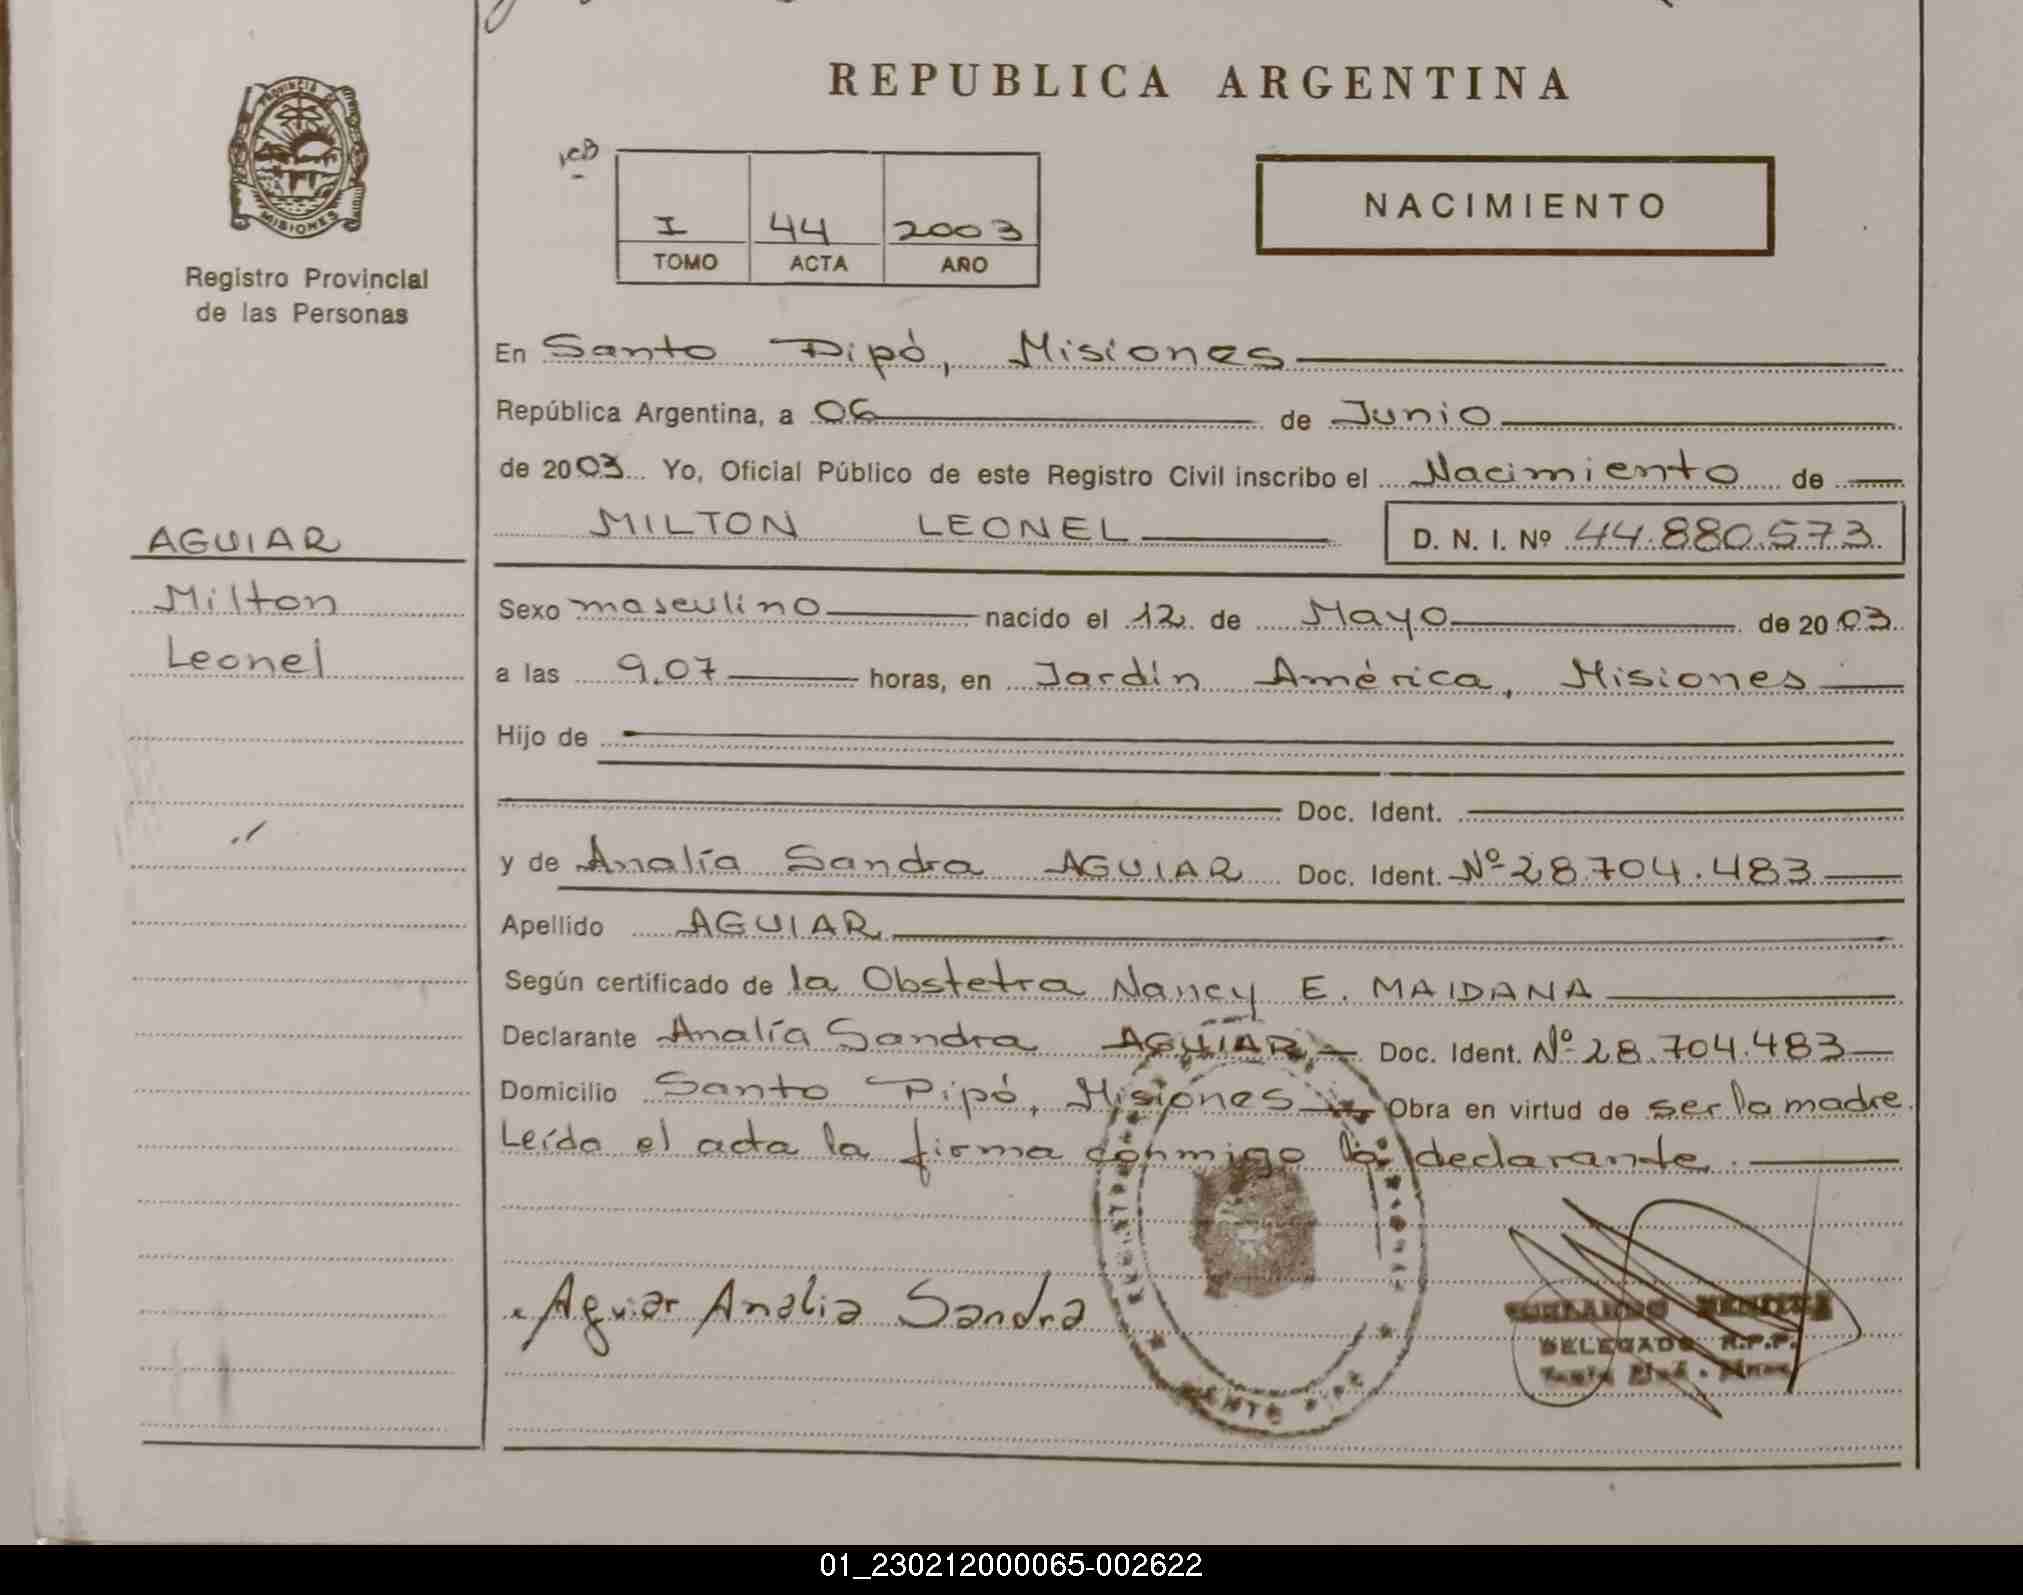 REPUBLICA ARGENTINA
PROVINCIA DE
MISIONES
Registro Provincial
de las Personas
I 44 2003
TOMO ACTA AÑO
NACIMIENTO
En Santo Pipó, Misiones
República Argentina, a 06 de Junio
de 2003 Yo, Oficial Público de este Registro Civil inscribo el Nacimiento de
MILTON LEONEL D. N. I. Nº 44.880.573
AGUIAR
Milton
Leonel
Sexo masculino nacido el 12 de Mayo de 2003
a las 9.07 horas, en Jardín América, Misiones
Hijo de
Doc. Ident.
y de Analía Sandra AGUIAR Doc. Ident. Nº 28.704.483
Apellido AGUIAR
Según certificado de la Obstetra Nancy E. MAIDANA
Declarante Analía Sandra AGUIAR Doc. Ident. Nº 28.704.483
Domicilio Santo Pipó, Misiones Obra en virtud de ser la madre.
Leída el acta la firma conmigo la declarante.
Aguiar Analia Sandra
DELEGADO R.P.P.
01_230212000065-002622